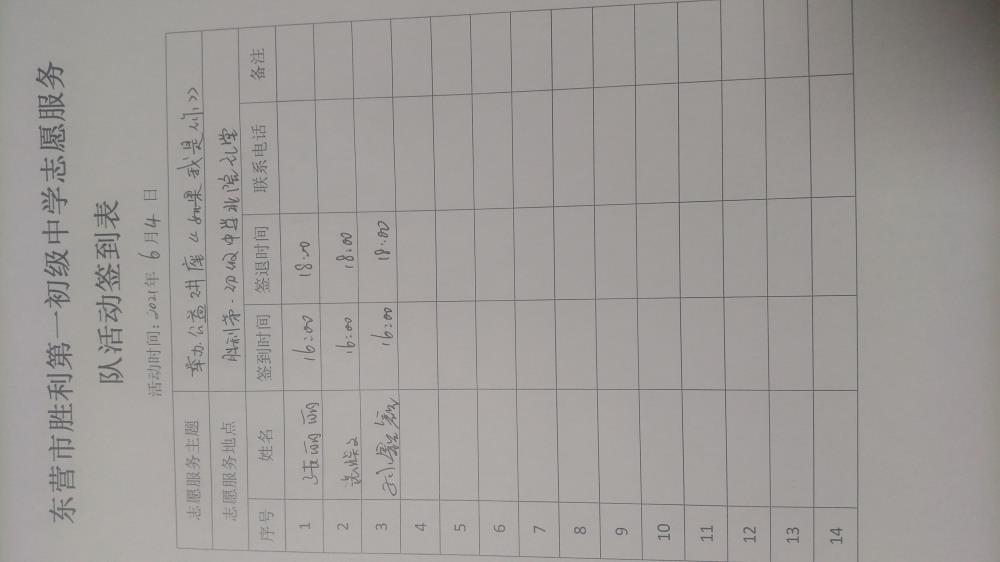 东营市胜利第一初级中学志愿服务
队活动签到表
活动时间:2021年 6月4 日
志愿服务主题 举办公益讲座《如果我是你》
志愿服务地点 胜利第一初级中学北院礼堂
序号 姓名 签到时间 签退时间 联系电话 备注
1 张丽丽 16:00 18:00
2 16:00 18:00
3 16:00 18:00
4
5
6
7
8
9
10
11
12
13
14